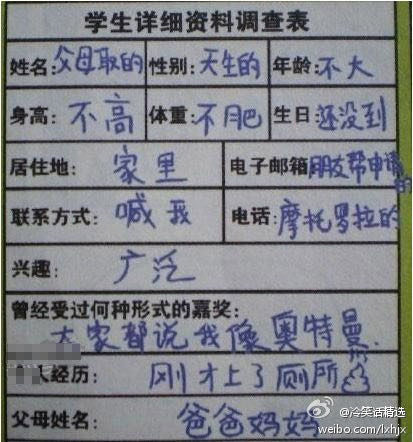 学生详细资料调查表
姓名:父母取的 性别:天生的 年龄:不大
身高:不高 体重:不肥 生日:还没到
居住地:家里 电子邮箱朋友帮申请的
联系方式:喊我 电话:摩托罗拉的
兴趣:广泛
曾经受过何种形式的嘉奖:
大家都说我像奥特曼
人经历:刚才上了厕所
父母姓名:爸爸妈妈
@冷笑话精选
weibo.com/lxhjx